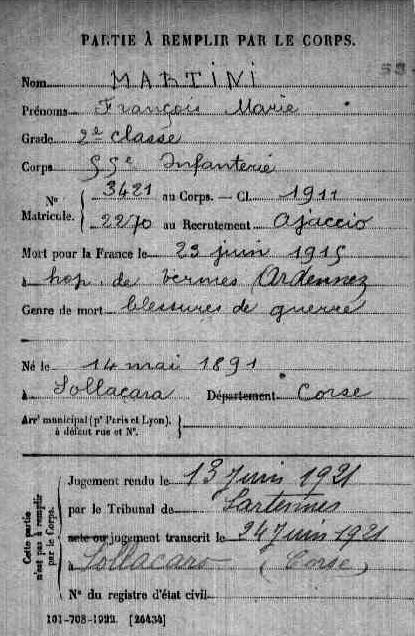 PARTIE À REMPLIR PAR LE CORPS.
Nom MARTINI
Prénoms François Marie
Grade 2e classe
Corps 55e Infanterie
N° Matricule. 3421 au Corps. — Cl. 1911
2270 au Recrutement Ajaccio
Mort pour la France le 23 juin 1915
à hop. de Vermes Ardennez
Genre de mort blessures de guerre
Né le 14 mai 1891
à Sollacara Département Corse
Arrt municipal (pr Paris et Lyon),
à défaut rue et N°.
Cette partie n'est pas à remplir par le Corps.
Jugement rendu le 13 Juin 1921
par le Tribunal de Sartennes
acte ou jugement transcrit le 24 Juin 1921
à Sollacaro (Corse)
N° du registre d'état civil
101-708-1922. [26434]